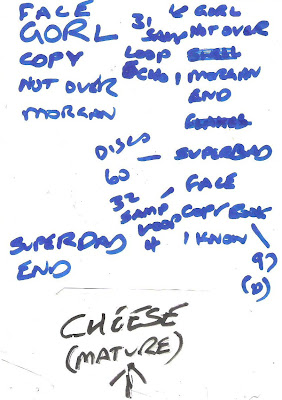 FACE
GORL
COPY
NOT OVER
MORGAN
SUPERDAD
END
31 GORL
SAMP NOT OVER
LOOP
ECHO 1 MORGAN
END
DISCO
60 — SUPERBAD
FACE
32
SAMP
LOOP COPY
4 I KNOW
97
CHEESE
(MATURE)